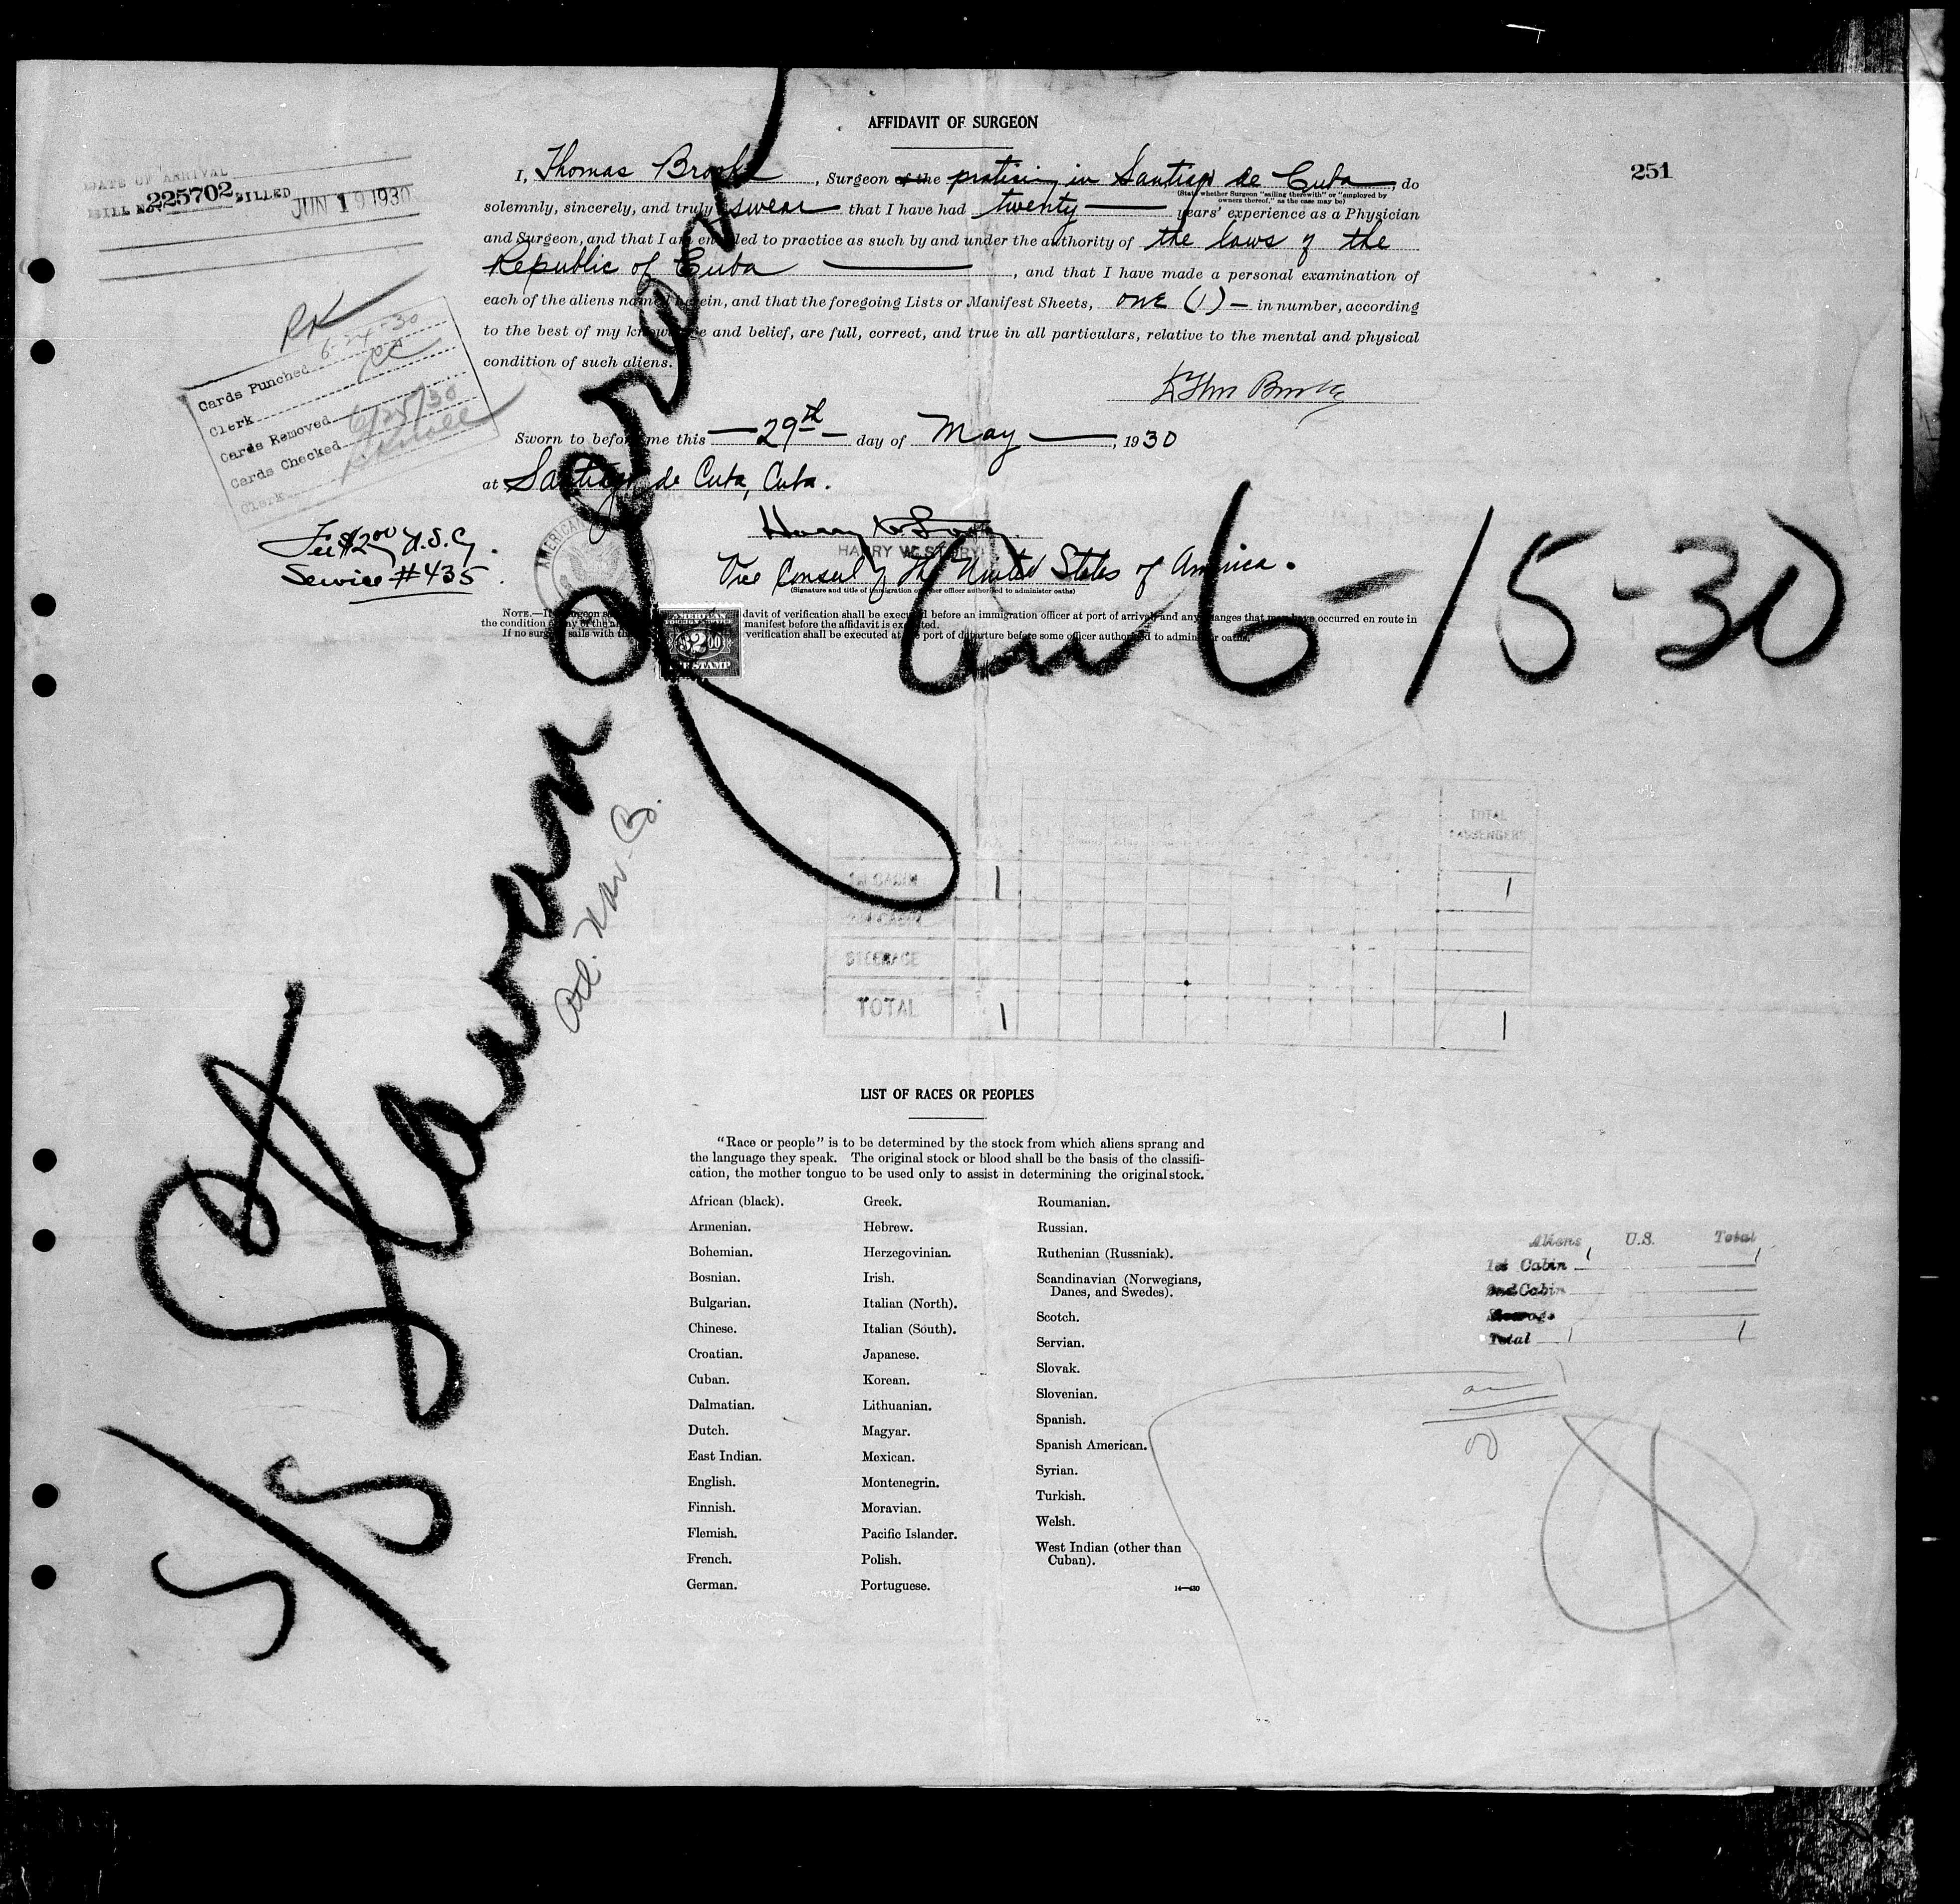 AFFIDAVIT OF SURGEON
251
I, Thomas Brooks, Surgeon of the practicing in Santiago de Cuba, do
(State whether Surgeon "sailing therewith" or "employed by owners thereof," as the case may be)
solemnly, sincerely, and truly swear that I have had twenty years' experience as a Physician
and Surgeon, and that I am entitled to practice as such by and under the authority of the laws of the
Republic of Cuba, and that I have made a personal examination of
each of the aliens named herein, and that the foregoing Lists or Manifest Sheets, one (1) in number, according
to the best of my knowledge and belief, are full, correct, and true in all particulars, relative to the mental and physical
condition of such aliens.
Sworn to before me this 29th day of May, 1930
at Santiago de Cuba, Cuba.
HARRY W. STORY
Vice Consul of the United States of America.
(Signature and title of immigration or other officer authorized to administer oaths)
davit of verification shall be executed before an immigration officer at port of arrival and any changes that may have occurred en route in
the condition of any of the manifest before the affidavit is executed.
If no surgeon sails with the verification shall be executed at the port of departure before some officer authorized to administer oaths.
AMERICAN
$2.00
FEE STAMP
DATE OF ARRIVAL
BILL No. 225702 BILLED JUN 19 1930
RK
Cards Punched 6-24-30
Clerk
Cards Removed 6/25/30
Cards Checked
Clerk
Fee $2.00 U.S.Cy.
Service #435
6-15-30
S/S
Nav. Co.
TOTAL PASSENGERS
1st CABIN 1 1
2nd CABIN
STEERAGE
TOTAL 1 1
LIST OF RACES OR PEOPLES
"Race or people" is to be determined by the stock from which aliens sprang and
the language they speak. The original stock or blood shall be the basis of the classifi-
cation, the mother tongue to be used only to assist in determining the original stock.
African (black).
Armenian.
Bohemian.
Bosnian.
Bulgarian.
Chinese.
Croatian.
Cuban.
Dalmatian.
Dutch.
East Indian.
English.
Finnish.
Flemish.
French.
German.
Greek.
Hebrew.
Herzegovinian.
Irish.
Italian (North).
Italian (South).
Japanese.
Korean.
Lithuanian.
Magyar.
Mexican.
Montenegrin.
Moravian.
Pacific Islander.
Polish.
Portuguese.
Roumanian.
Russian.
Ruthenian (Russniak).
Scandinavian (Norwegians,
Danes, and Swedes).
Scotch.
Servian.
Slovak.
Slovenian.
Spanish.
Spanish American.
Syrian.
Turkish.
Welsh.
West Indian (other than
Cuban).
14—430
Aliens U.S. Total
1st Cabin 1 1
2nd Cabin
Steerage
Total 1 1